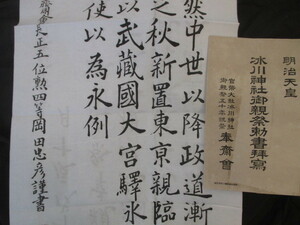 明治天皇
冰川神社御親祭勅書拜寫
官幣大社氷川神社
奉齋會
然中世以降政道漸
之秋新置東亰親臨
以武藏國大宮驛氷
使以為永例
長正五位勲四等岡田忠彦謹書